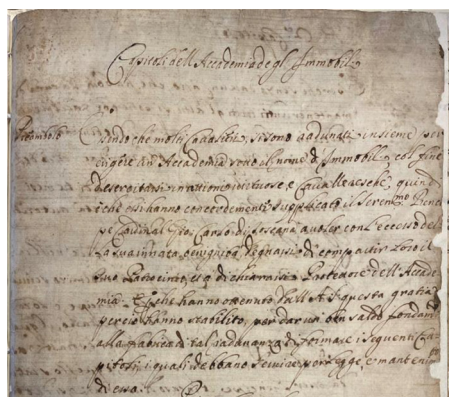 Capitoli dell'Accademia degl'Immobili
Preambolo
Essendo che molti Cavalieri si sono adunati insieme per
erigere un Accademia sotto al nome d'Immobili, col fine
di esercitarsi in azzioni virtuose, e Cavalleresche, quindi
è che essi hanno concordemente supplicato il Seren.mo Prencipe
Cardinal Gio: Carlo di Toscana a voler con l'eccesso della
sua innata benignità, degnarsi di compatir loro il
suo Patrocinio, e di dichiararsi Protettore dell'Accade
mia. E che hanno ottenuto dall'A.S. questa gratia
perciò hanno stabilito, per dar un ben saldo fondam.
alla fabrica di tal adunanza di formare i seguenti Ca
pitoli, i quali debbano servire per legge, e mantenim
di essa.